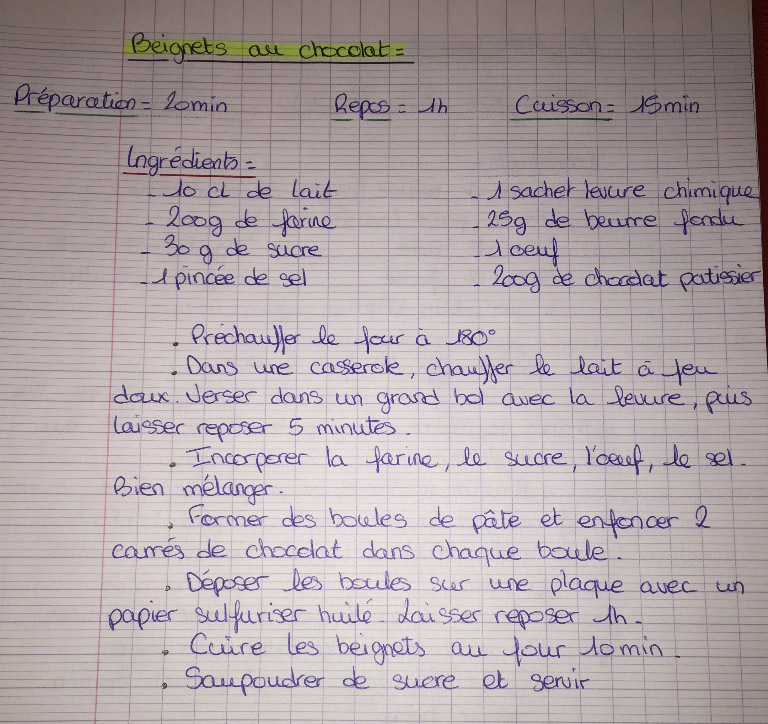 Beignets au chocolat =
Préparation = 20min Repos = 1h Cuisson = 15min
Ingrédients =
- 10 cl de lait - 1 sachet levure chimique
- 200g de farine - 25g de beurre fondu
- 30 g de sucre - 1 oeuf
- 1 pincée de sel - 200g de chocolat patissier
. Préchauffer le four à 180°
. Dans une casserole, chauffer le lait à feu
doux. Verser dans un grand bol avec la levure, puis
laisser reposer 5 minutes.
. Incorporer la farine, le sucre, l'oeuf, le sel.
Bien mélanger.
. Former des boules de pâte et enfoncer 2
carrés de chocolat dans chaque boule.
. Déposer les boules sur une plaque avec un
papier sulfuriser huilé. Laisser reposer 1h.
. Cuire les beignets au four 10min.
. Saupoudrer de sucre et servir